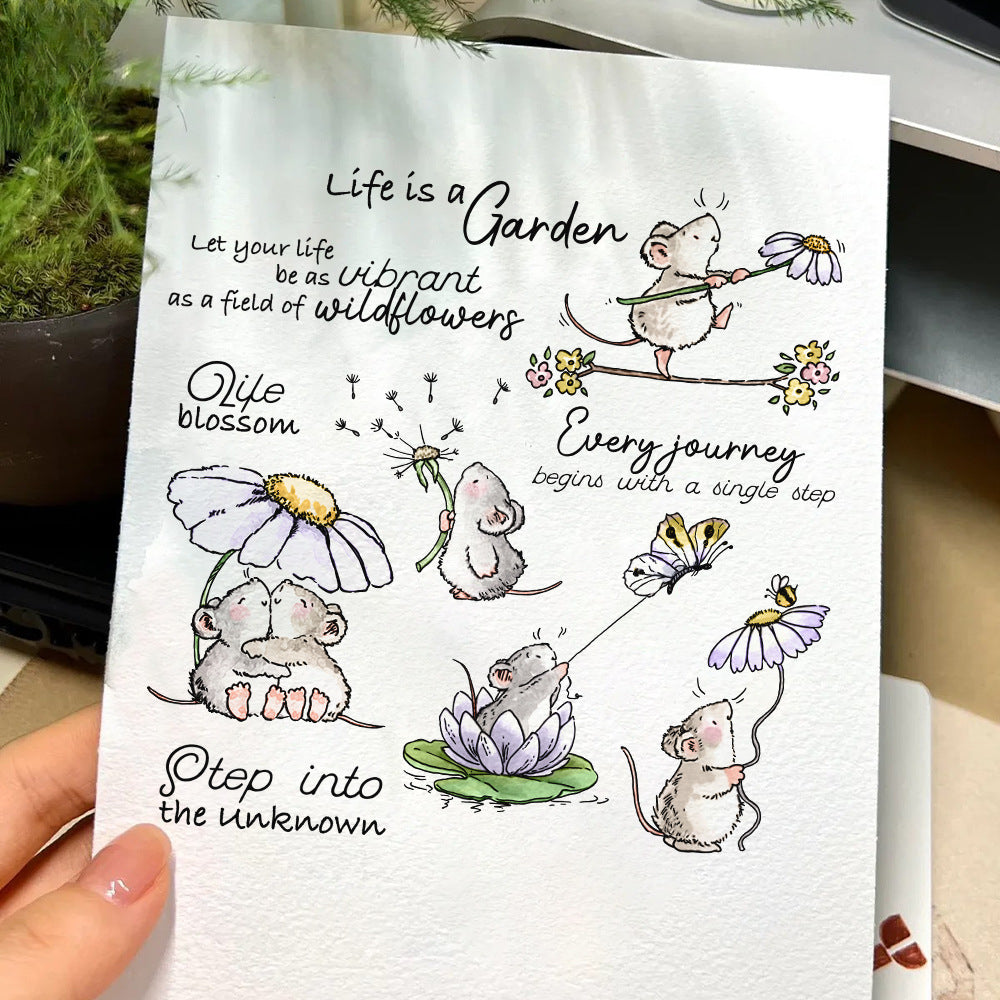 Life is a
Garden
Let your life
be as vibrant
as a field of wildflowers
Life
blossom
Every journey
begins with a single step
Step into
the unknown